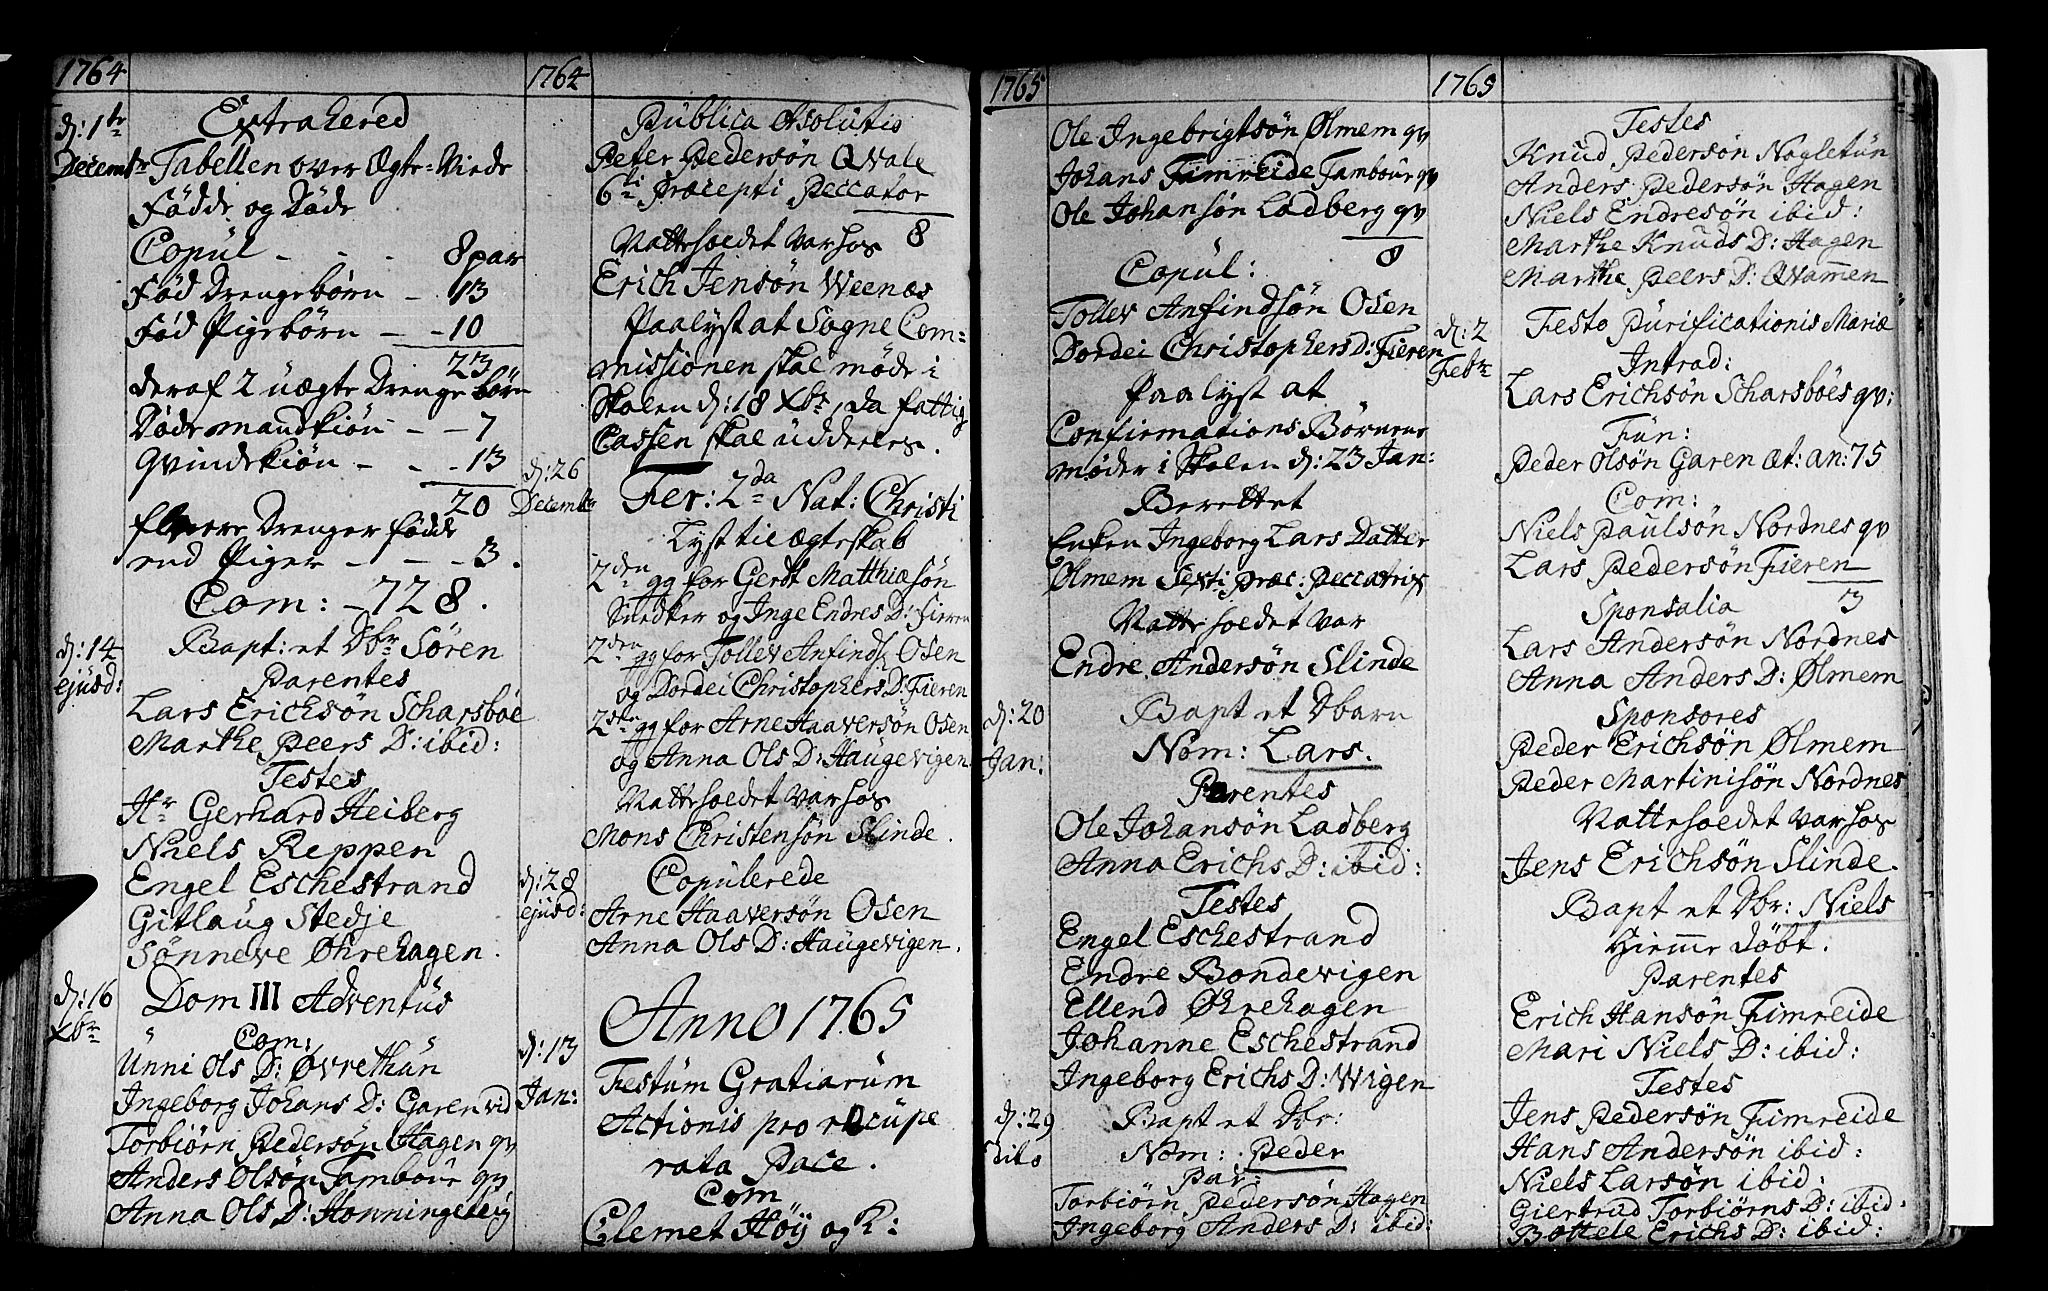 1764
d: 1te
Decembr
Extrahered
Tabellen over Ægte-Viede
Fødde og Døde
Copul - - - 8 par
Fød Drengebørn - 13
Fød Pigebørn - - 10
23
deraf 2 uægte Drengebörn
Døde mandkiøn - - 7
Qvindekiøn - - - 13
20
fleere Drenger födde
end Piger - - - 3.
Com: - 728.
d: 14
ejusd:
Bapt: et Dbr Sören
Parentes
Lars Ericksön Scharsböe
Marthe Peers D: ibid:
Testes
Hr Gerhard Heiberg
Niels Reppen
Engel Eschestrand
Gitlaug Stedje
Sönneve Øhrehagen.
d: 16
Xbr
Dom III Adventus
Com:
Unni Ols D: Øvrethun
Ingeborg Johans D: Garen vid
Torbiörn Pedersön Hagen qv
Anders Olsön Tambour qv
Anna Ols D: Honningeteig
1764
Publica Absolutis
Peter Pedersön Qvale
6ti Præcepti Peccator
8
Natteholdet var hos
Erich Jensön Weenæs
Paalyst at Sogne Com-
missionen skal møde i
Skolen d: 18 Xbr, da fattig
Cassen skal uddeeles.
d: 26
Decembr
Fer: 2da Nat: Christi
Lyst til Ægteskab
2den gg for Gerdt Matthiæsön
Snedker og Inge Endres D: Fieren
2den gg for Tollev Anfinds: Osen
og Dordei Christophers D: Fieren
2den gg for Arne Haaversön Osen
og Anna Ols D: Haugevigen
Natteholdet var hos
Mons Christensön Slinde.
d: 28
ejusd:
Copulerede
Arne Haaversön Osen
Anna Ols D: Haugevigen.
Anno 1765
d: 13
Jan:
Festum Gratiarum
Actionis pro recupe
rata Pace.
Com
Clemet Höy og K:
1765
Ole Ingebrigtsön Ølmem qv
Johans Fimreide Tambour qv
Ole Johansön Ladberg qv
8
Copul:
Tollev Anfindsön Osen
Dordei Christophers D: Fieren
Paalyst at
Confirmations Børnene
møder i Skolen d: 23 Jan:
Berettet
Enken Ingeborg Lars Datter
Ølmem Sexti præc: Peccatrix
Natteholdet var
Endre Andersön Slinde
d: 20
Jan:
Bapt et Dbarn
Nom: Lars.
Parentes
Ole Johansön Ladberg
Anna Erichs D: ibid:
Testes
Engel Eschestrand
Endre Bondevigen
Ellend Øhrehagen
Johanne Eschestrand
Ingeborg Erichs D: Wigen
d: 29
dito
Bapt et Dbr:
Nom: Peder
Par:
Torbiörn Pedersön Hagen
Ingeborg Anders D: ibid:
1765
Testes
Knud Pedersön Nagletun
Anders Pedersön Hagen
Niels Endresön ibid:
Marthe Knuds D: Hagen
Marthe Peers D: Qvammen
d: 2
Febr
Festo Purificationis Mariæ
Introd:
Lars Erichsön Scharsböes qv:
Fun:
Peder Olsön Garen æt: an: 75
Com:
Niels Paulsön Nordnes qv
Lars Pedersön Fieren
3
Sponsalia
Lars Andersön Nordnes
Anna Anders D: Ølmem
Sponsores
Peder Erichsön Ølmem
Peder Martinisön Nordnes
Natteholdet var hos
Jens Erichsön Slinde.
Bapt et Dbr: Niels
Hiemme döbt.
Parentes
Erich Hansön Fimreide
Mari Niels D: ibid:
Testes
Jens Pedersön Fimreide
Hans Andersön ibid:
Niels Larsön ibid:
Giertrud Torbiörns D: ibid:
Bottele Erichs D: ibid: